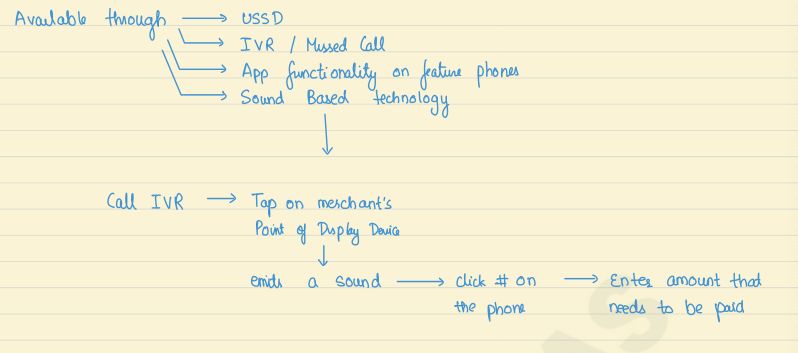 Available through → USSD
→ IVR / Missed Call
→ App functionality on feature phones
→ Sound Based technology
↓
Call IVR → Tap on merchant's
Point of Display Device
↓
emits a sound → click # on
the phone
→ Enter amount that
needs to be paid